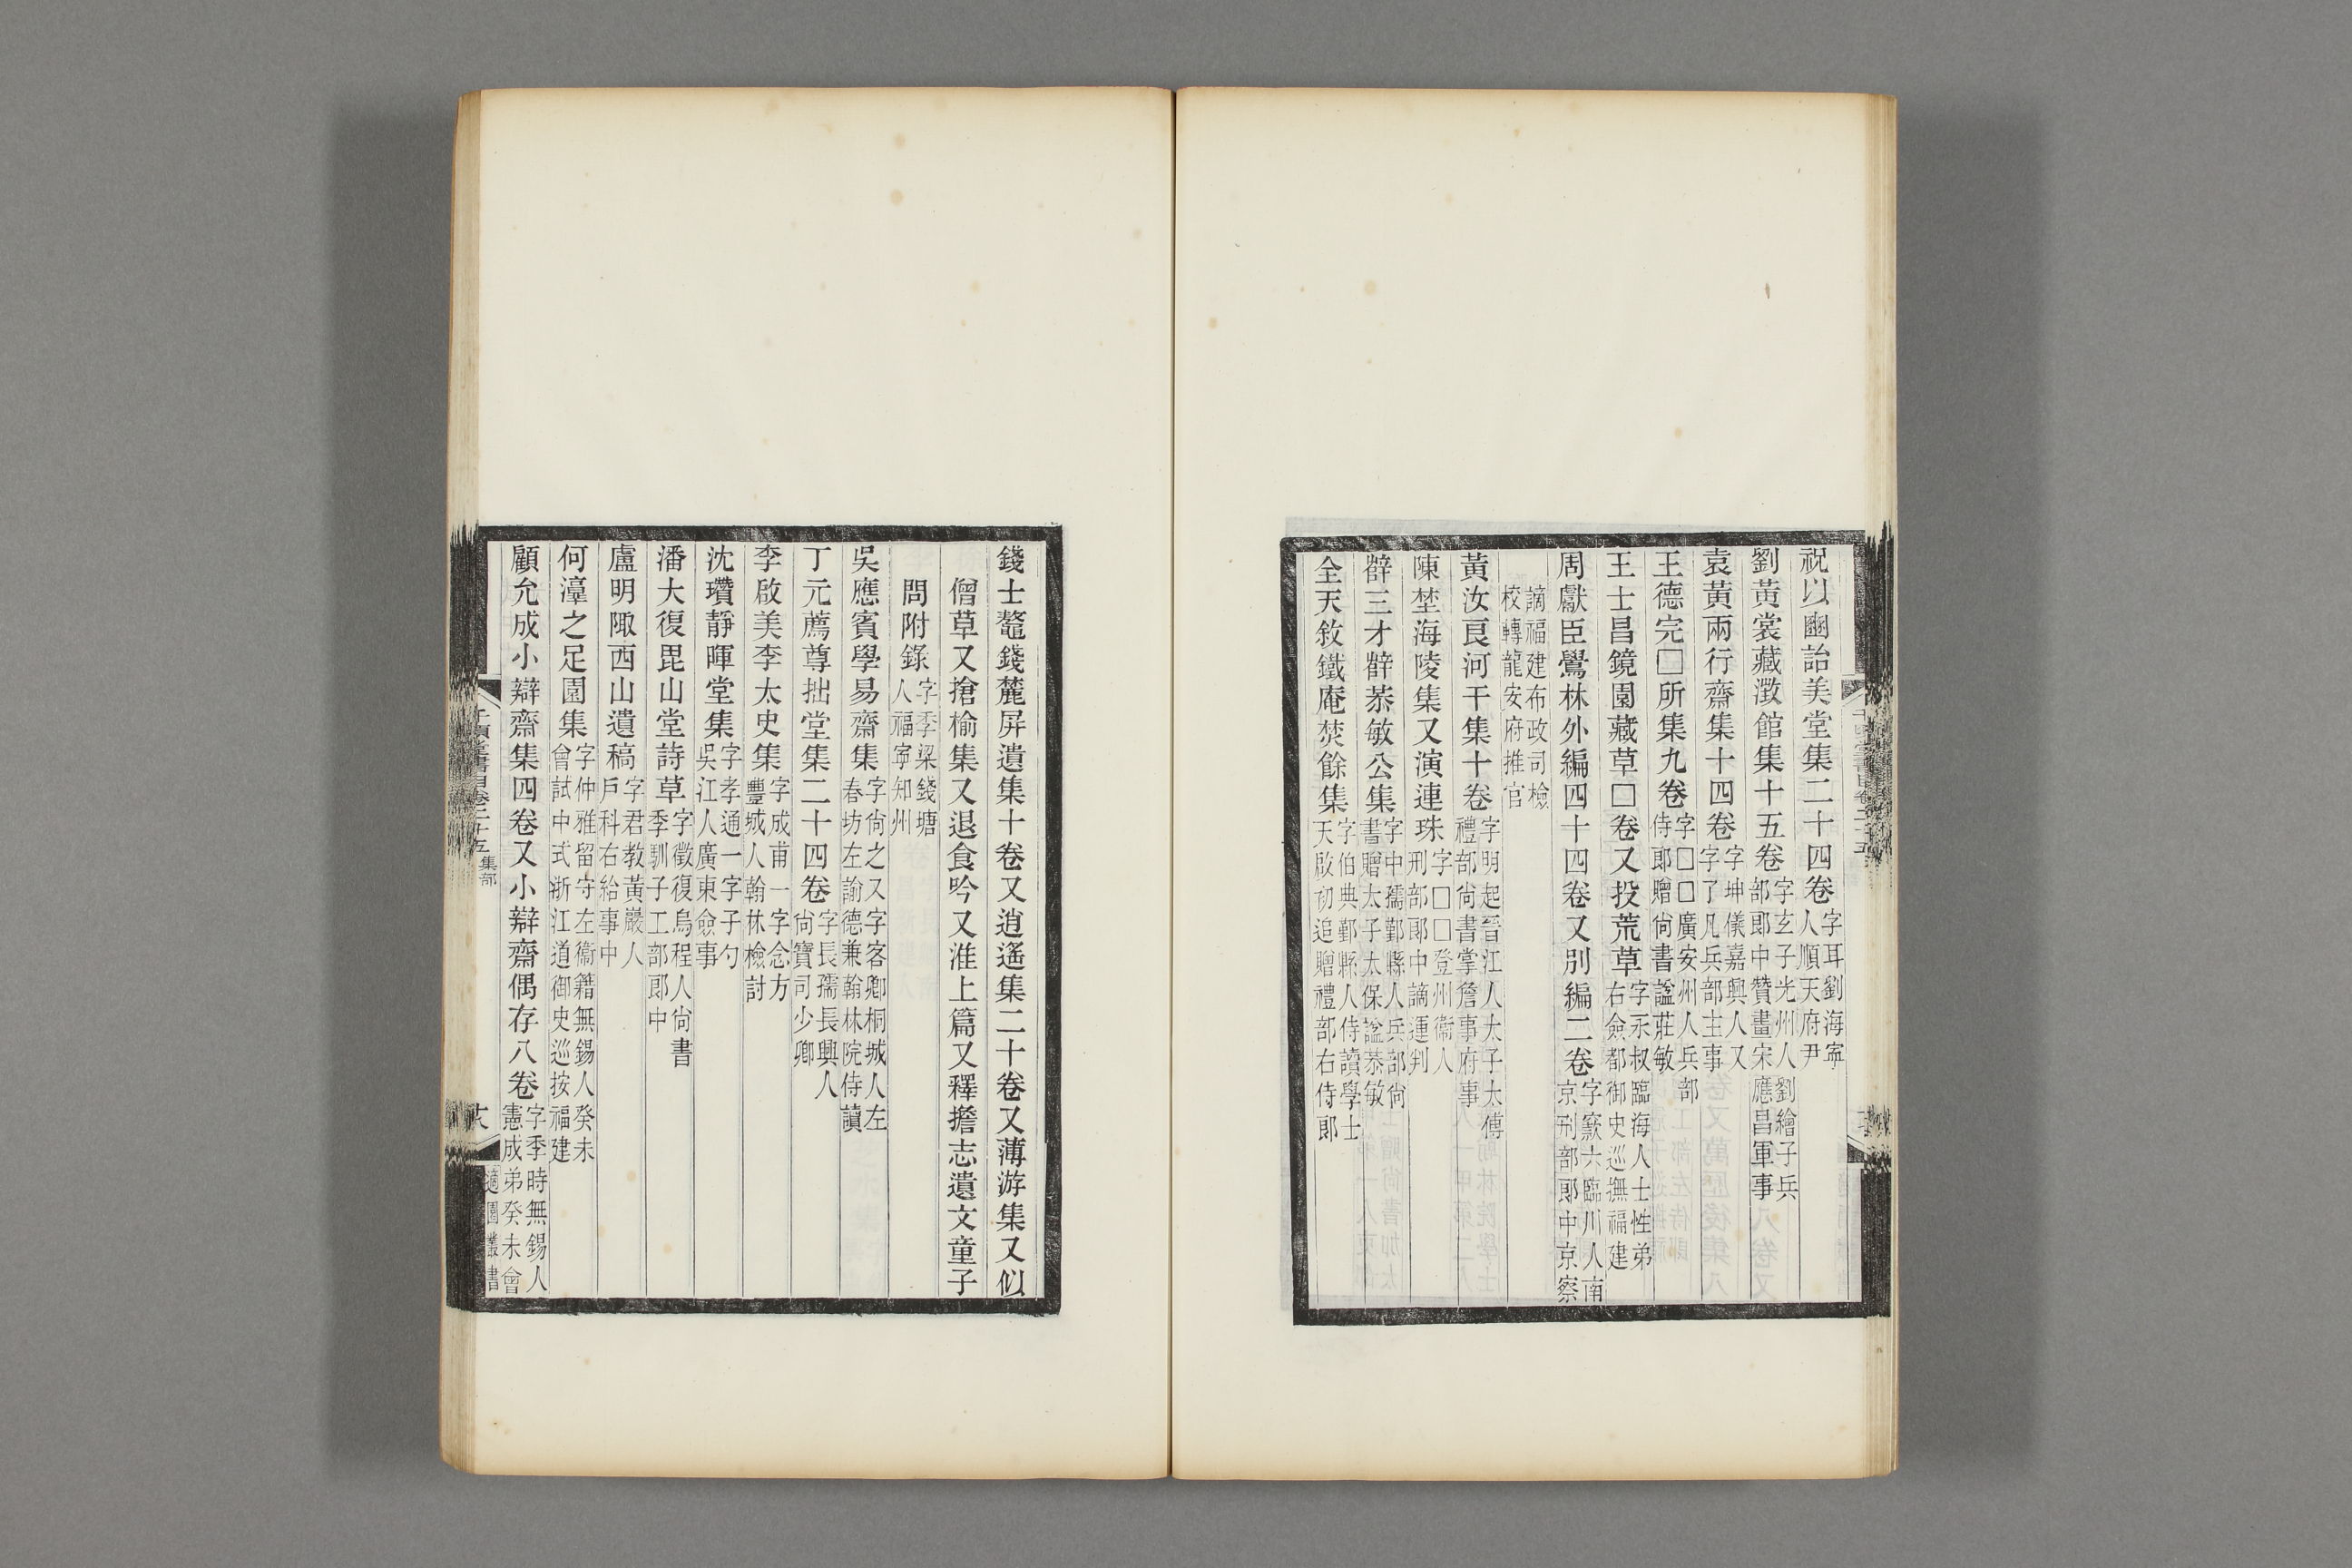 祝以豳詒美堂集二十四卷字耳劉海寧人順天府尹
劉黃裳藏澂館集十五卷字玄子光州人劉繪子兵部郎中贊畫宋應昌軍事
袁黃兩行齋集十四卷字坤儀嘉興人又字了凡兵部主事
王德完□所集九卷字□□廣安州人兵部侍郎贈尙書諡莊敏
王士昌鏡園藏草□卷又投荒草字永叔臨海人士性弟右僉都御史巡撫福建
周獻臣鷽林外編四十四卷又別編二卷字窾六臨川人南京刑部郎中京察
謫福建布政司檢校轉龍安府推官
黃汝良河干集十卷字明起晉江人太子太傅禮部尙書掌詹事府事
陳埜海陵集又演連珠字□□登州衞人刑部郎中謫運判
薛三才薛恭敏公集字中孺鄞縣人兵部尙書贈太子太保諡恭敏
全天敘鐵庵焚餘集字伯典鄞縣人侍讀學士天啟初追贈禮部右侍郎
錢士鰲錢麓屏遺集十卷又逍遙集二十卷又薄游集又似
僧草又搶榆集又退食吟又淮上篇又釋擔志遺文童子
問附錄字季梁錢塘人福寧知州
吳應賓學易齋集字尙之又字客卿桐城人左春坊左諭德兼翰林院侍讀
丁元薦尊拙堂集二十四卷字長孺長興人尙寶司少卿
李啟美李太史集字成甫一字念方豐城人翰林檢討
沈瓚靜暉堂集字孝通一字子勺吳江人廣東僉事
潘大復毘山堂詩草字徵復烏程人尙書季馴子工部郎中
盧明陬西山遺稿字君教黃巖人戶科右給事中
何湻之足園集字仲雅留守左衞籍無錫人癸未曾試中式浙江道御史巡按福建
顧允成小辯齋集四卷又小辯齋偶存八卷字季時無錫人憲成弟癸未會
千頃堂書目卷二十五 集部
十八
適園叢書